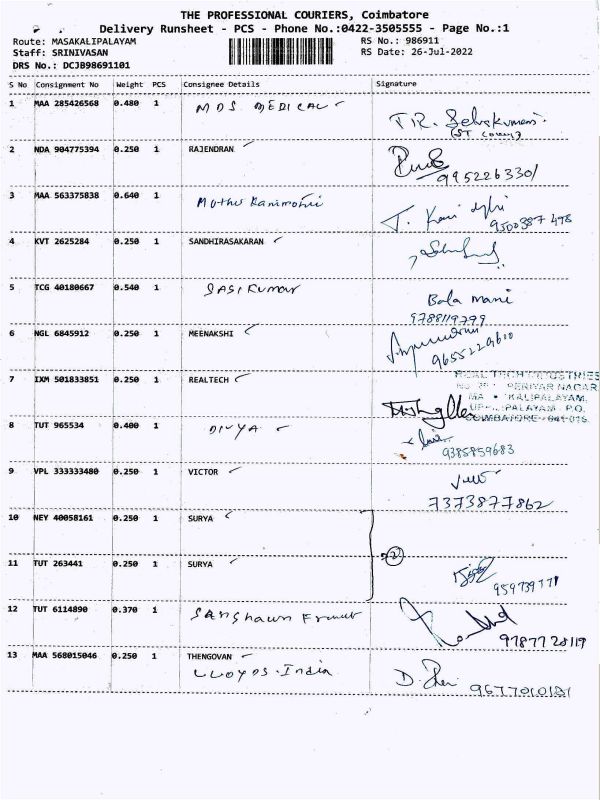 THE PROFESSIONAL COURIERS, Coimbatore
Delivery Runsheet - PCS - Phone No.:0422-3505555 - Page No.:1
Route: MASAKALIPALAYAM
RS No.: 986911
Staff: SRINIVASAN
RS Date: 26-Jul-2022
DRS No.: DCJB98691101
S No Consignment No Weight PCS Consignee Details Signature
1 MAA 285426568 0.480 1 MDS MEDICAL
2 NDA 904775394 0.250 1 RAJENDRAN
9952263301
3 MAA 563375838 0.640 1 Muthu Kanimozhi
4 KVT 2625284 0.250 1 SANDHIRASAKARAN
5 TCG 40180667 0.540 1 SASIKUMAR
Bala mani
9788119799
6 NGL 6845912 0.250 1 MEENAKSHI
9655229610
7 IXM 501833851 0.250 1 REALTECH
PERIYAR NAGAR
8 TUT 965534 0.400 1 DIVYA
9385859683
9 VPL 333333480 0.250 1 VICTOR
7373877862
10 NEY 40058161 0.250 1 SURYA
2
11 TUT 263441 0.250 1 SURYA
12 TUT 6114890 0.370 1
9787728119
13 MAA 568015046 0.250 1 THENGOVAN
LLOYDS India
9677010181